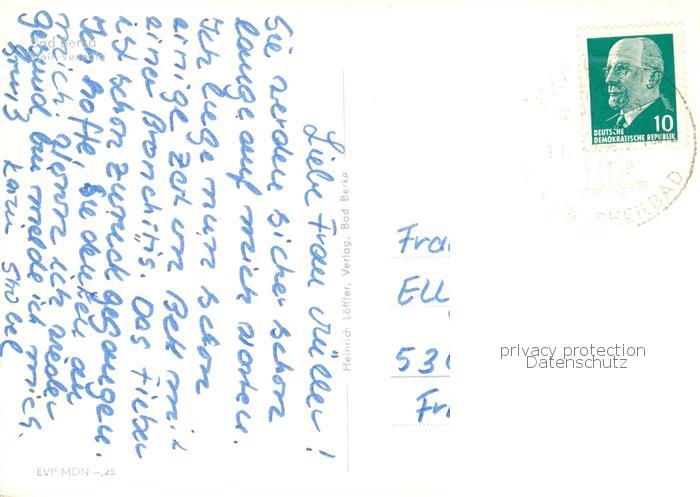 Bad Berka
Liebe Frau Müller!
Sie werden sicher schon
lange auf mich warten.
Ich liege nun schon
einige Zeit im Bett mit
einer Bronchitis. Das Fieber
ist schon zurückgegangen.
Ich hoffe, Sie denken an
mich. Wenn ich wieder
gesund bin melde ich mich.
Gruß Karin
Heinrich Löffler, Verlag, Bad Berka
EVP MDN –,25
10
DEUTSCHE
DEMOKRATISCHE REPUBLIK
Fra
Ell
53
Fr
privacy protection
Datenschutz